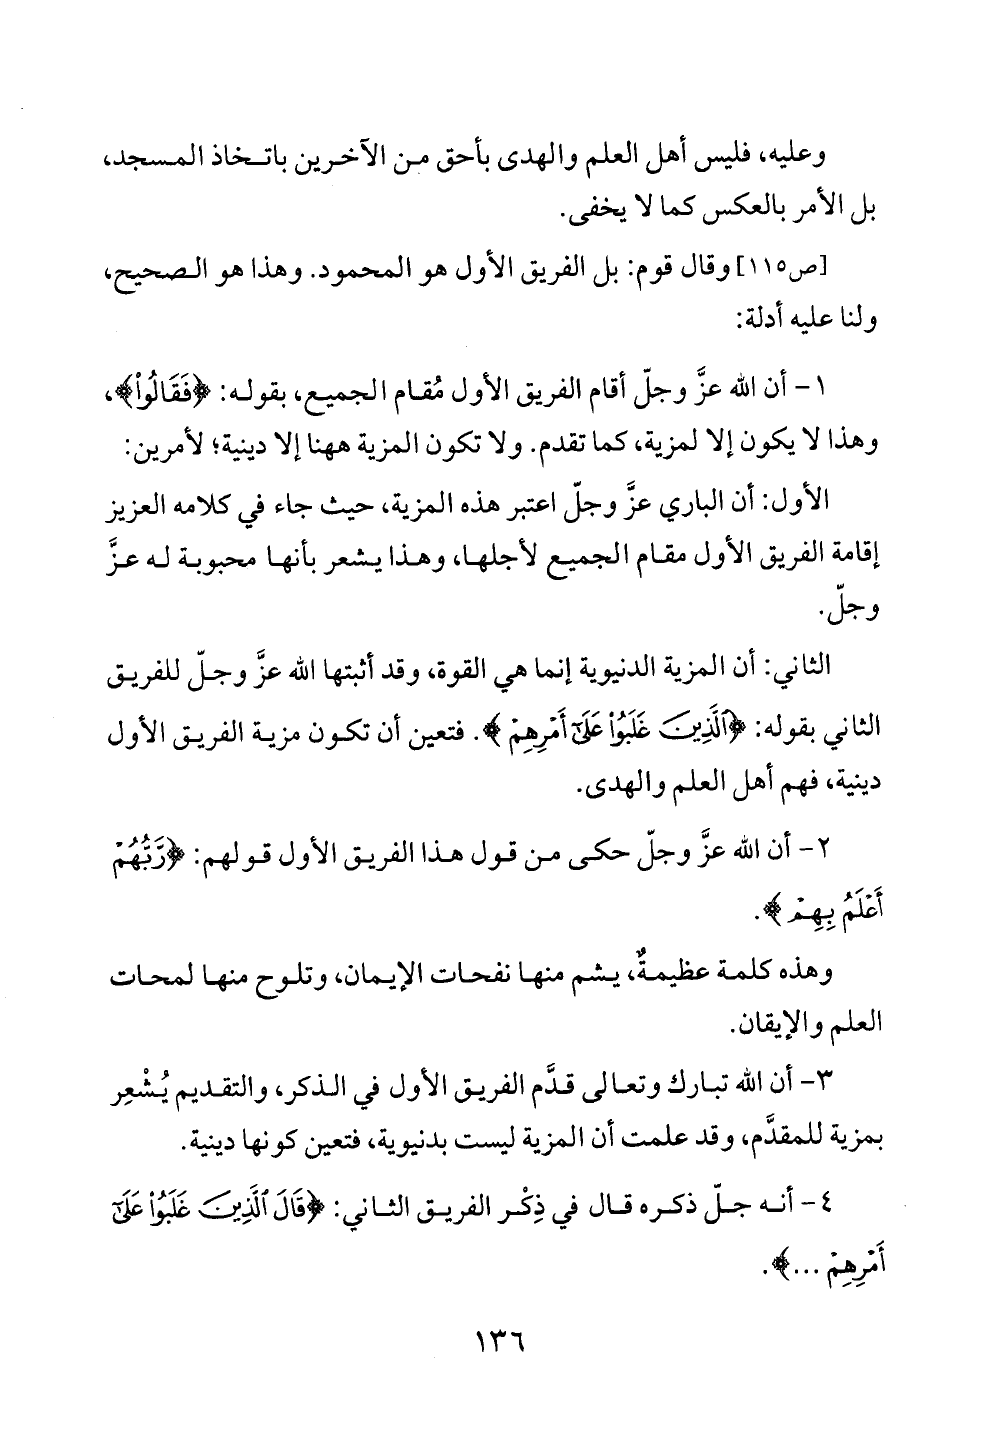 وعليه، فليس أهل العلم والهدى بأحق من الآخرين باتخاذ المسجد،
بل الأمر بالعكس كما لا يخفى.
[ص١١٥] وقال قوم: بل الفريق الأول هو المحمود. وهذا هو الصحيح،
ولنا عليه أدلة:
١- أن الله عزَّ وجلّ أقام الفريق الأول مُقام الجميع، بقوله: ﴿فَقَالُوا۟﴾،
وهذا لا يكون إلا لمزية، كما تقدم. ولا تكون المزية ههنا إلا دينية؛ لأمرين:
الأول: أن الباري عزَّ وجلّ اعتبر هذه المزية، حيث جاء في كلامه العزيز
إقامة الفريق الأول مقام الجميع لأجلها، وهذا يشعر بأنها محبوبة له عزَّ
وجلّ.
الثاني: أن المزية الدنيوية إنما هي القوة، وقد أثبتها الله عزَّ وجلّ للفريق
الثاني بقوله: ﴿ٱلَّذِينَ غَلَبُوا۟ عَلَىٰٓ أَمْرِهِمْ﴾. فتعين أن تكون مزية الفريق الأول
دينية، فهم أهل العلم والهدى.
٢- أن الله عزَّ وجلّ حكى من قول هذا الفريق الأول قولهم: ﴿رَّبُّهُمْ
أَعْلَمُ بِهِمْ﴾.
وهذه كلمة عظيمةٌ، يشم منها نفحات الإيمان، وتلوح منها لمحات
العلم والإيقان.
٣- أن الله تبارك وتعالى قدَّم الفريق الأول في الذكر، والتقديم يُشْعِر
بمزية للمقدَّم، وقد علمت أن المزية ليست بدنيوية، فتعين كونها دينية.
٤- أنه جلّ ذكره قال في ذِكْر الفريق الثاني: ﴿قَالَ ٱلَّذِينَ غَلَبُوا۟ عَلَىٰٓ
أَمْرِهِمْ ...﴾.
١٣٦